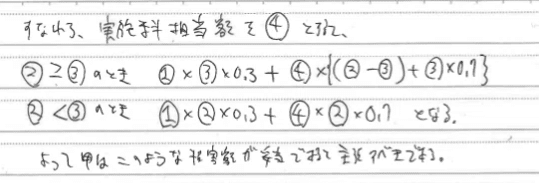 すなわち、実施料相当額を④とすると、
②≧③のとき ①×③×0.3+④×{(②-③)+③×0.7}
②<③のとき ①×②×0.3+④×②×0.7 となる。
よって甲はこのような損害額が妥当であると主張すべきである。